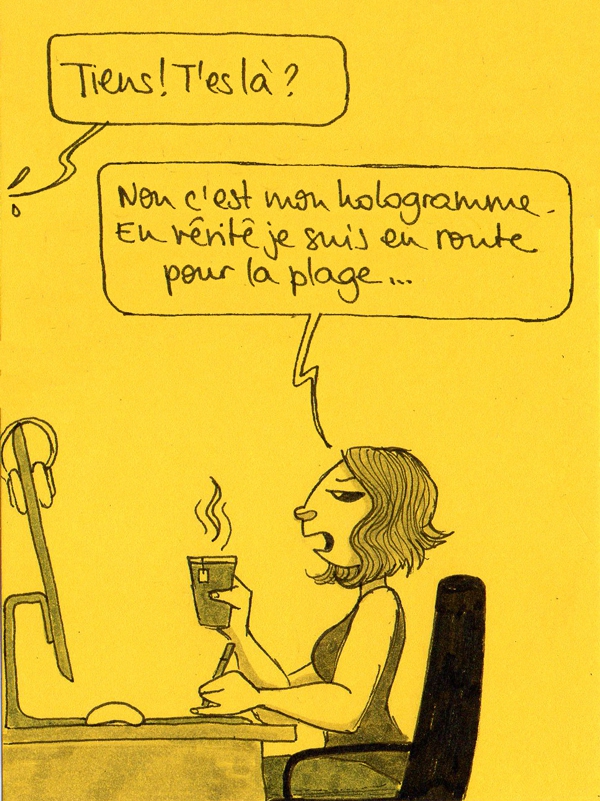 Tiens! T'es là ?
Non c'est mon hologramme.
En vérité je suis en route
pour la plage...